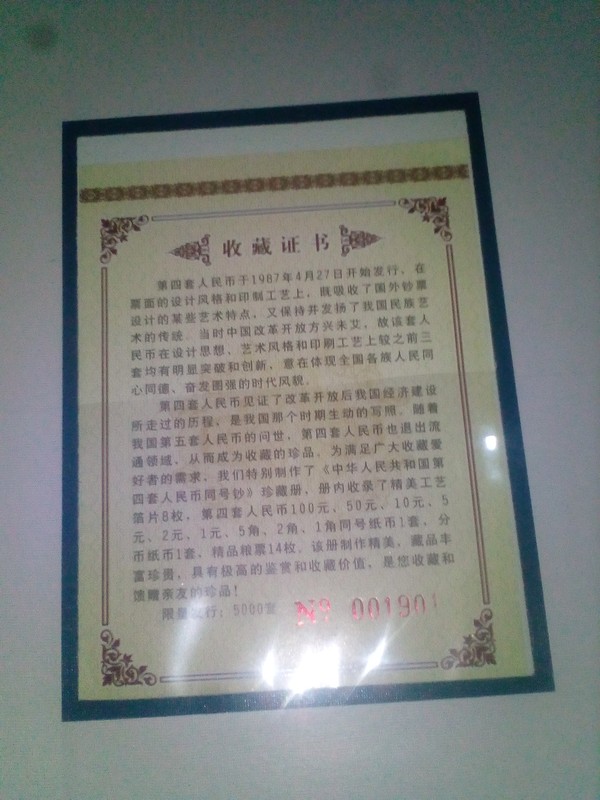 收藏证书
第四套人民币于1987年4月27日开始发行、在
票面的设计风格和印制工艺上，既吸收了国外钞票
设计的某些艺术特点，又保持并发扬了我国民族艺
术的传统。当时中国改革开放方兴未艾，故该套人
民币在设计思想、艺术风格和印刷工艺上较之前三
套均有明显突破和创新，意在体现全国各族人民同
心同德、奋发图强的时代风貌。
第四套人民币见证了改革开放后我国经济建设
所走过的历程，是我国那个时期生动的写照。随着
我国第五套人民币的问世，第四套人民币也退出流
通领域，从而成为收藏的珍品。为满足广大收藏爱
好者的需求，我们特别制作了《中华人民共和国第
四套人民币同号钞》珍藏册，册内收录了精美工艺
箔片8枚，第四套人民币100元、50元、10元、5
元、2元、1元、5角、2角、1角同号纸币1套，分
币纸币1套，精品粮票14枚。该册制作精美，藏品丰
富珍贵，具有极高的鉴赏和收藏价值，是您收藏和
馈赠亲友的珍品！
限量发行：5000套 № 001901